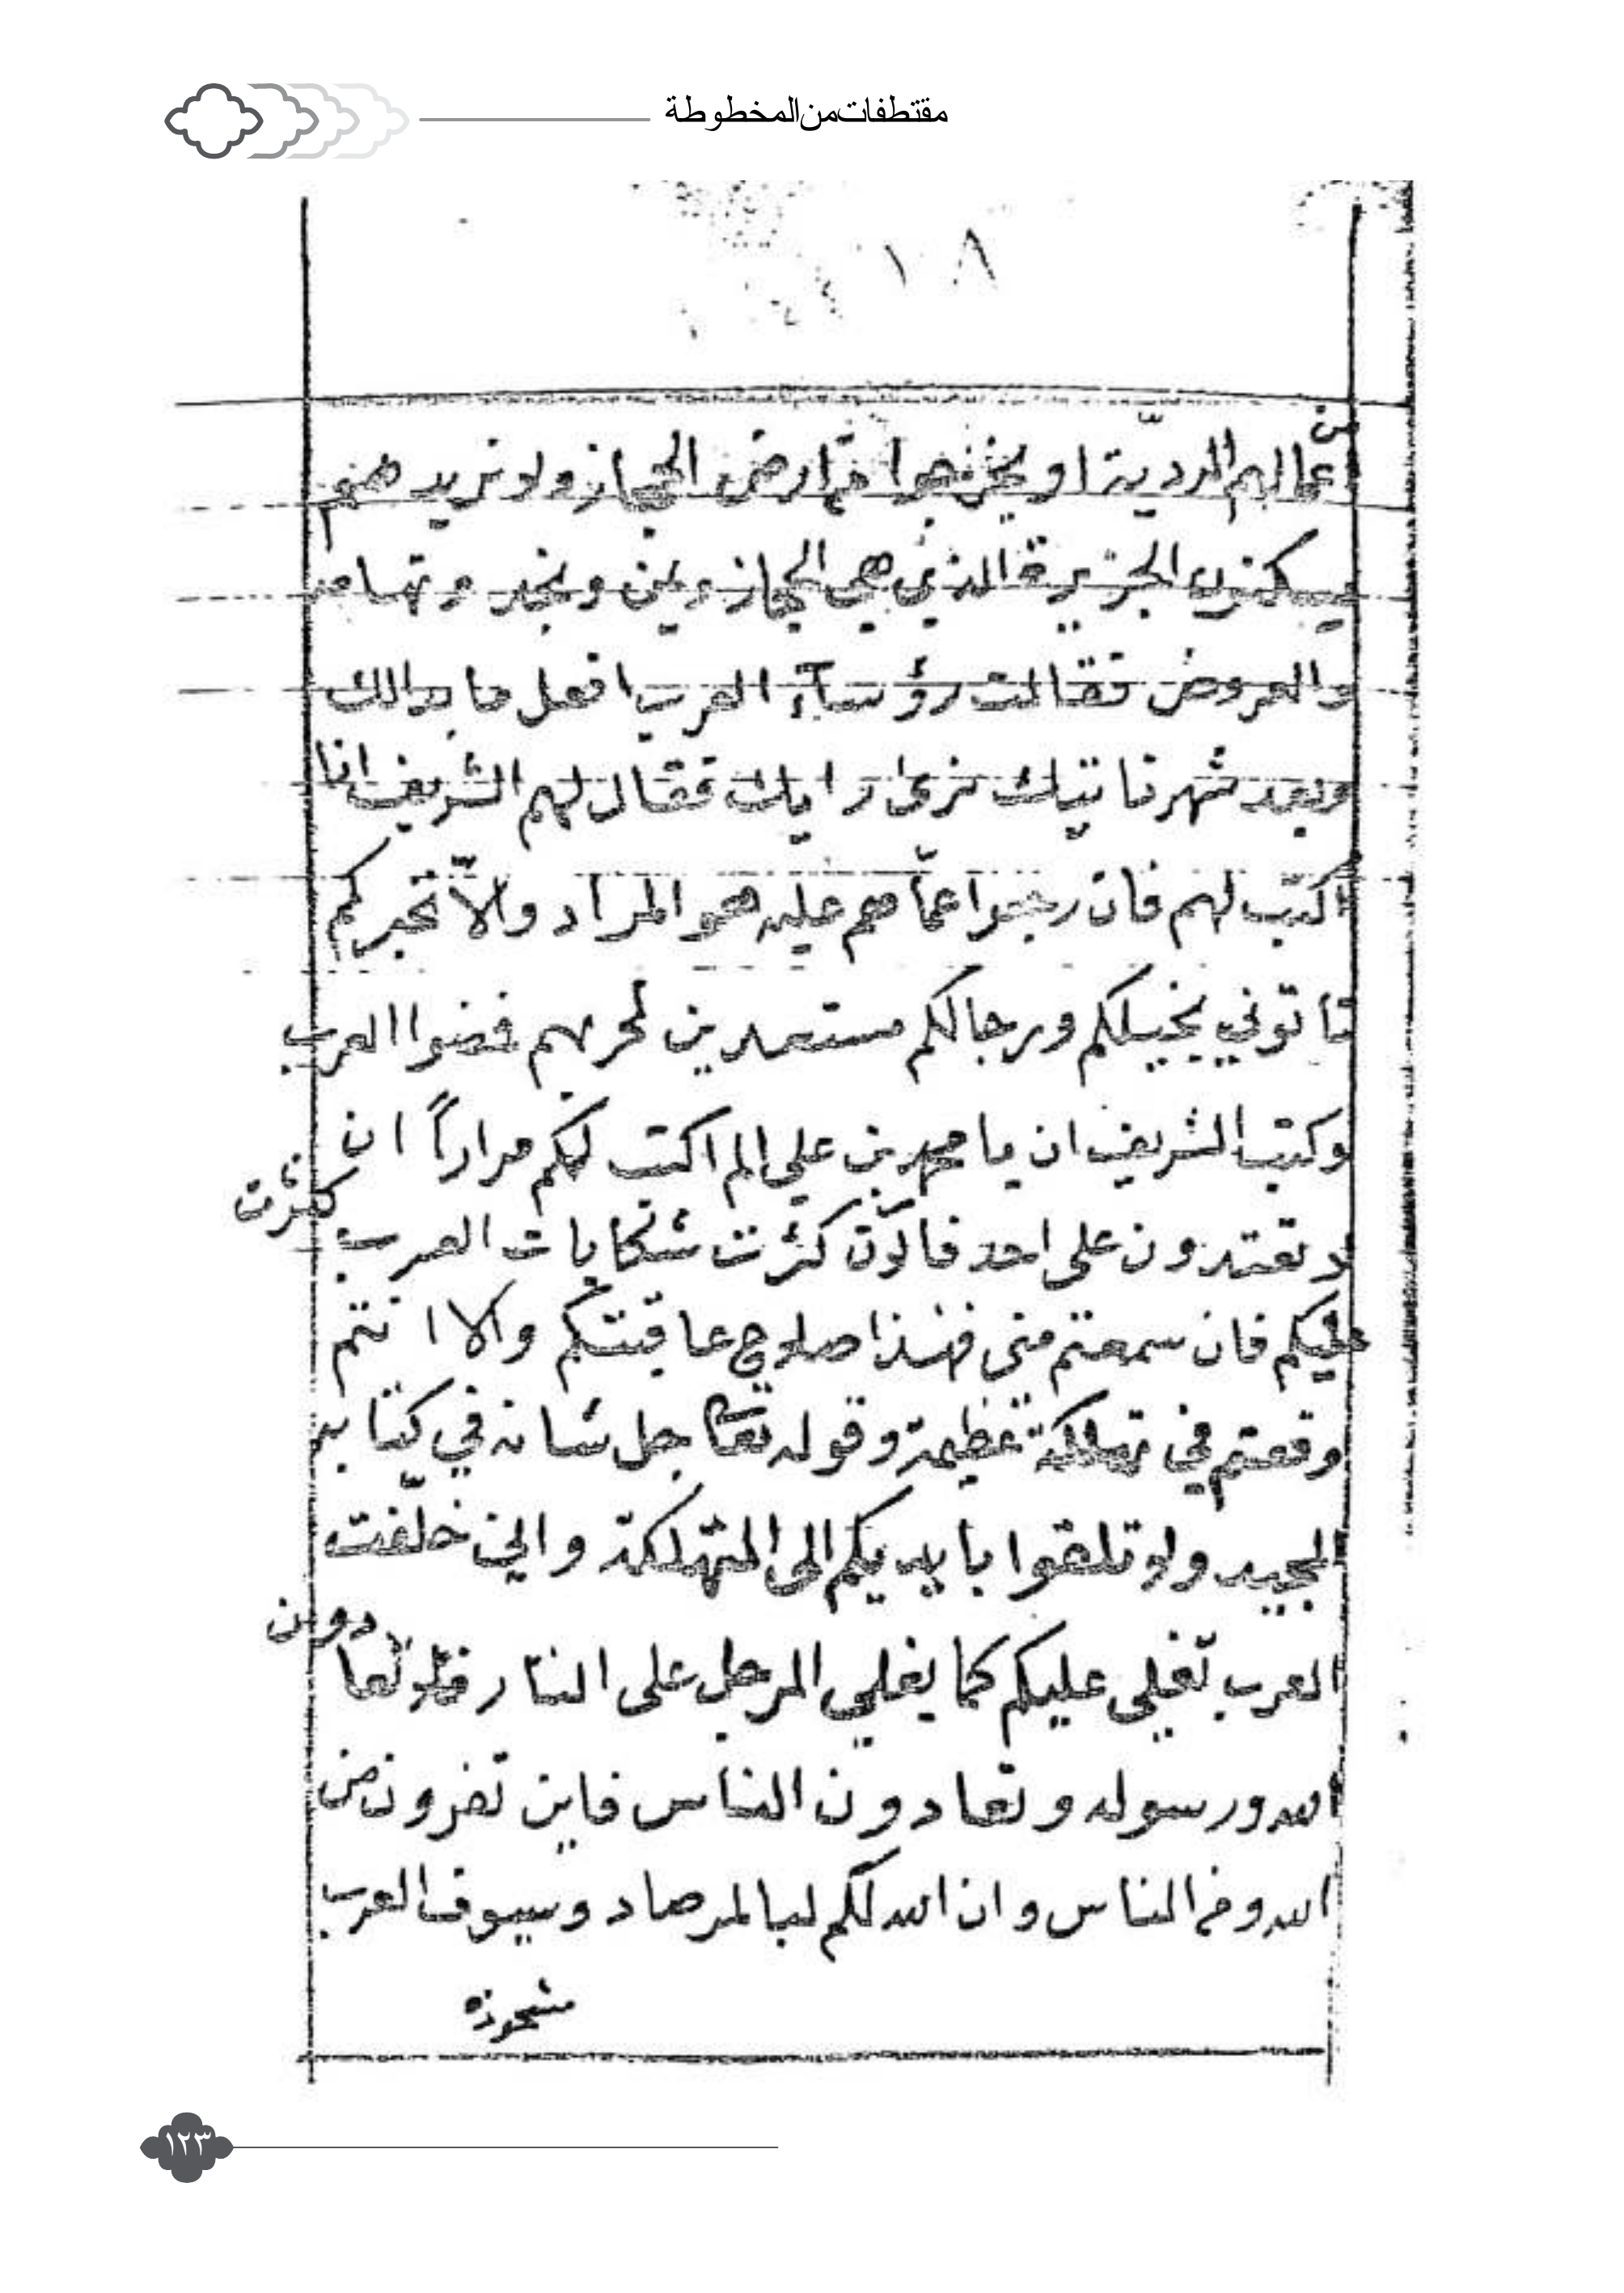 مقتطفات من المخطوطة
١٨
من
اعمالهم الرديّة او يخرجوا من ارض الحجاز ولا نريدهم
يسكنون الجزيرة الذي هي الحجاز ويمن ونجد وتهامه
والعروض فقالت رؤسآء العرب افعل ما بدالك
وبعد شهر ناتيك نرى رايك فقال لهم الشريف انا
اكتب لهم فان رجعوا عمّا هم عليه هو المراد والاّ نخبركم
تأتوني بخيلكم ورجالكم مستعدين لحربهم فضوا العرب
وكتب الشريف ان يا محمد بن علي الم اكتب لكم مراراً ان
لا تعتدون على احد فالآن كثرت شكايات العرب
كثرت
عليكم فان سمعتم مني فهذا صلاح عاقبتكم والا انتم
وقعتم في تهلكة عظيمة وقوله تعا جل شانه في كتابه
المجيد ولا تلقوا بايديكم الى التهلكة واني خلّفت
العرب تغلي عليكم كما يغلي المرجل على النار فلا تعا
دون
الله ورسوله وتعادون الناس فاين تفرون من
الله ومن الناس وان الله لكم لبالمرصاد وسيوف العرب
مشحوذه
١٢٣